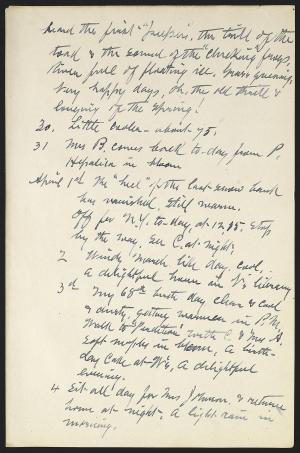 heard the first "Jackson", the trill of the
toad & the sound of the "clucking frogs,
River full of floating ice. Grass greening,
Very happy days, oh, the old thrill &
longing of the Spring!
30. Little cooler - about 45.
31 Mrs B. comes back to-day from P.
Hepatica in bloom
April 1st The "heel" of the last snow bank
has vanished. Still warm.
Off for N.Y. to-day, at 12.15. Stop
by the way, see C. at night.
2 Windy March like day, cool,
A delightful hour in library
3d My 68th birth day clear & cool
& dusty, getting warmer in P.M.
Walk to with C. & Mrs
Soft maples in bloom, A birth-
day Cake at A delightful
evening.
4 Sit all day for Mrs Johnson & return
home at night. A light rain in
morning.